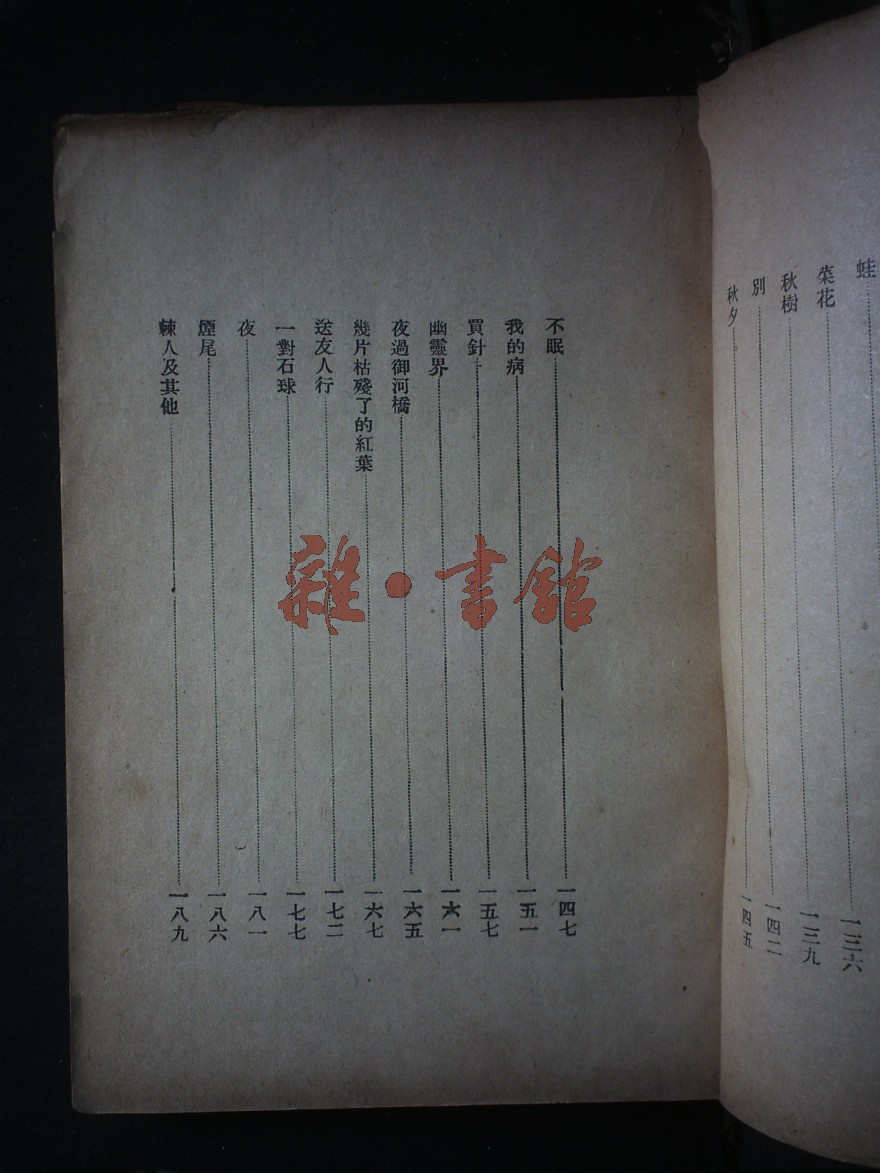 蛙 一三六
菜花 一三九
秋樹
別 一四二
秋夕 一四五
不眠 一四七
我的病 一五一
買針 一五七
幽靈界 一六一
夜過御河橋 一六五
幾片枯殘了的紅葉 一六七
送友人行 一七二
一對石球 一七七
夜 一八一
煙尾 一八六
棘人及其他 一八九
雜·書館